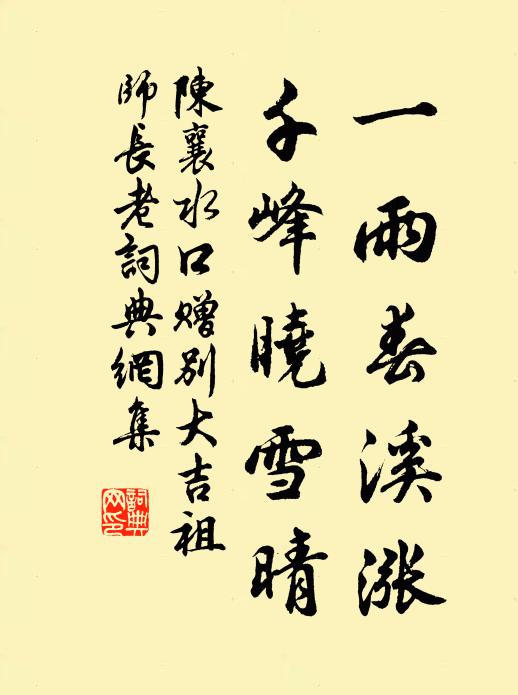 一雨春溪涨
千峰曉雪晴
陳襄水口赠别大吉祖
師長老詞典網集
詞典
网印